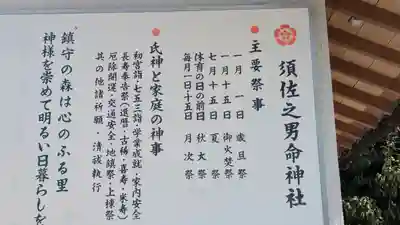 須佐之男命神社
主要祭事
一月 一日 歳旦祭
一月十五日 御火焚祭
七月十五日 夏祭
体育の日の前日 秋大祭
毎月一日十五日 月次祭
氏神と家庭の神事
初宮詣・七五三詣・学業成就・家内安全
長寿奉告祭(還暦・古稀・喜寿・米寿)
厄除開運・交通安全・地鎮祭・上棟祭
其の他諸祈願 清祓執行
鎮守の森は心のふる里
神様を崇めて明るい日暮らしを